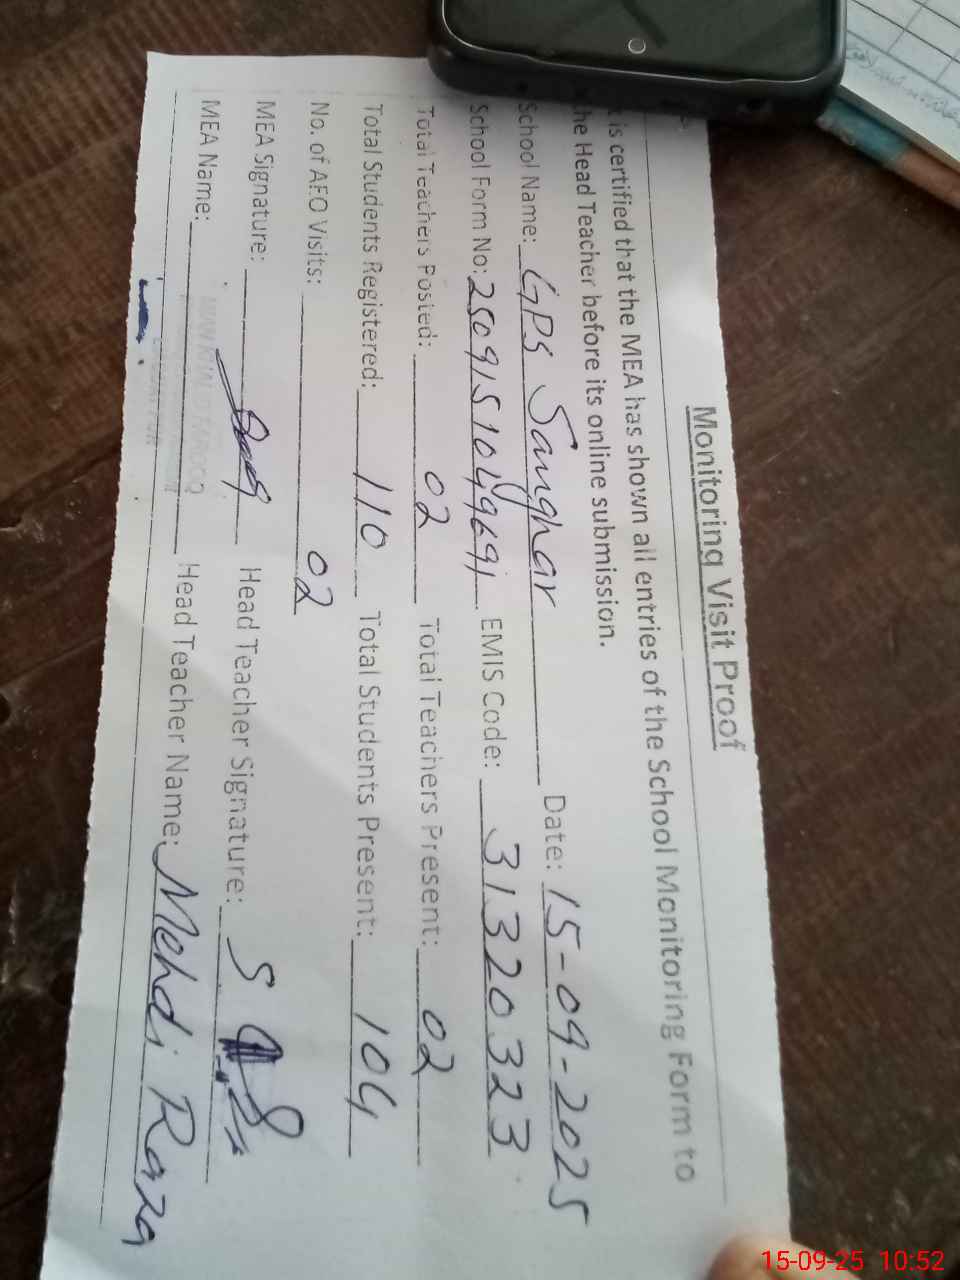 Monitoring Visit Proof
is certified that the MEA has shown all entries of the School Monitoring Form to
the Head Teacher before its online submission.
School Name: GPS Sanghar Date: 15-09-2025
School Form No: 2509151049691 EMIS Code: 31320323
Total Teachers Posted: 02 Total Teachers Present: 02
Total Students Registered: 110 Total Students Present: 104
No. of AEO Visits: 02
MEA Signature: Head Teacher Signature:
MEA Name: Head Teacher Name: Mehdi Raza
15-09-25 10:52